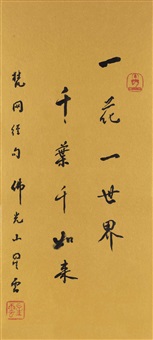 一花一世界
千葉千如来
梵网经句 佛光山星雲